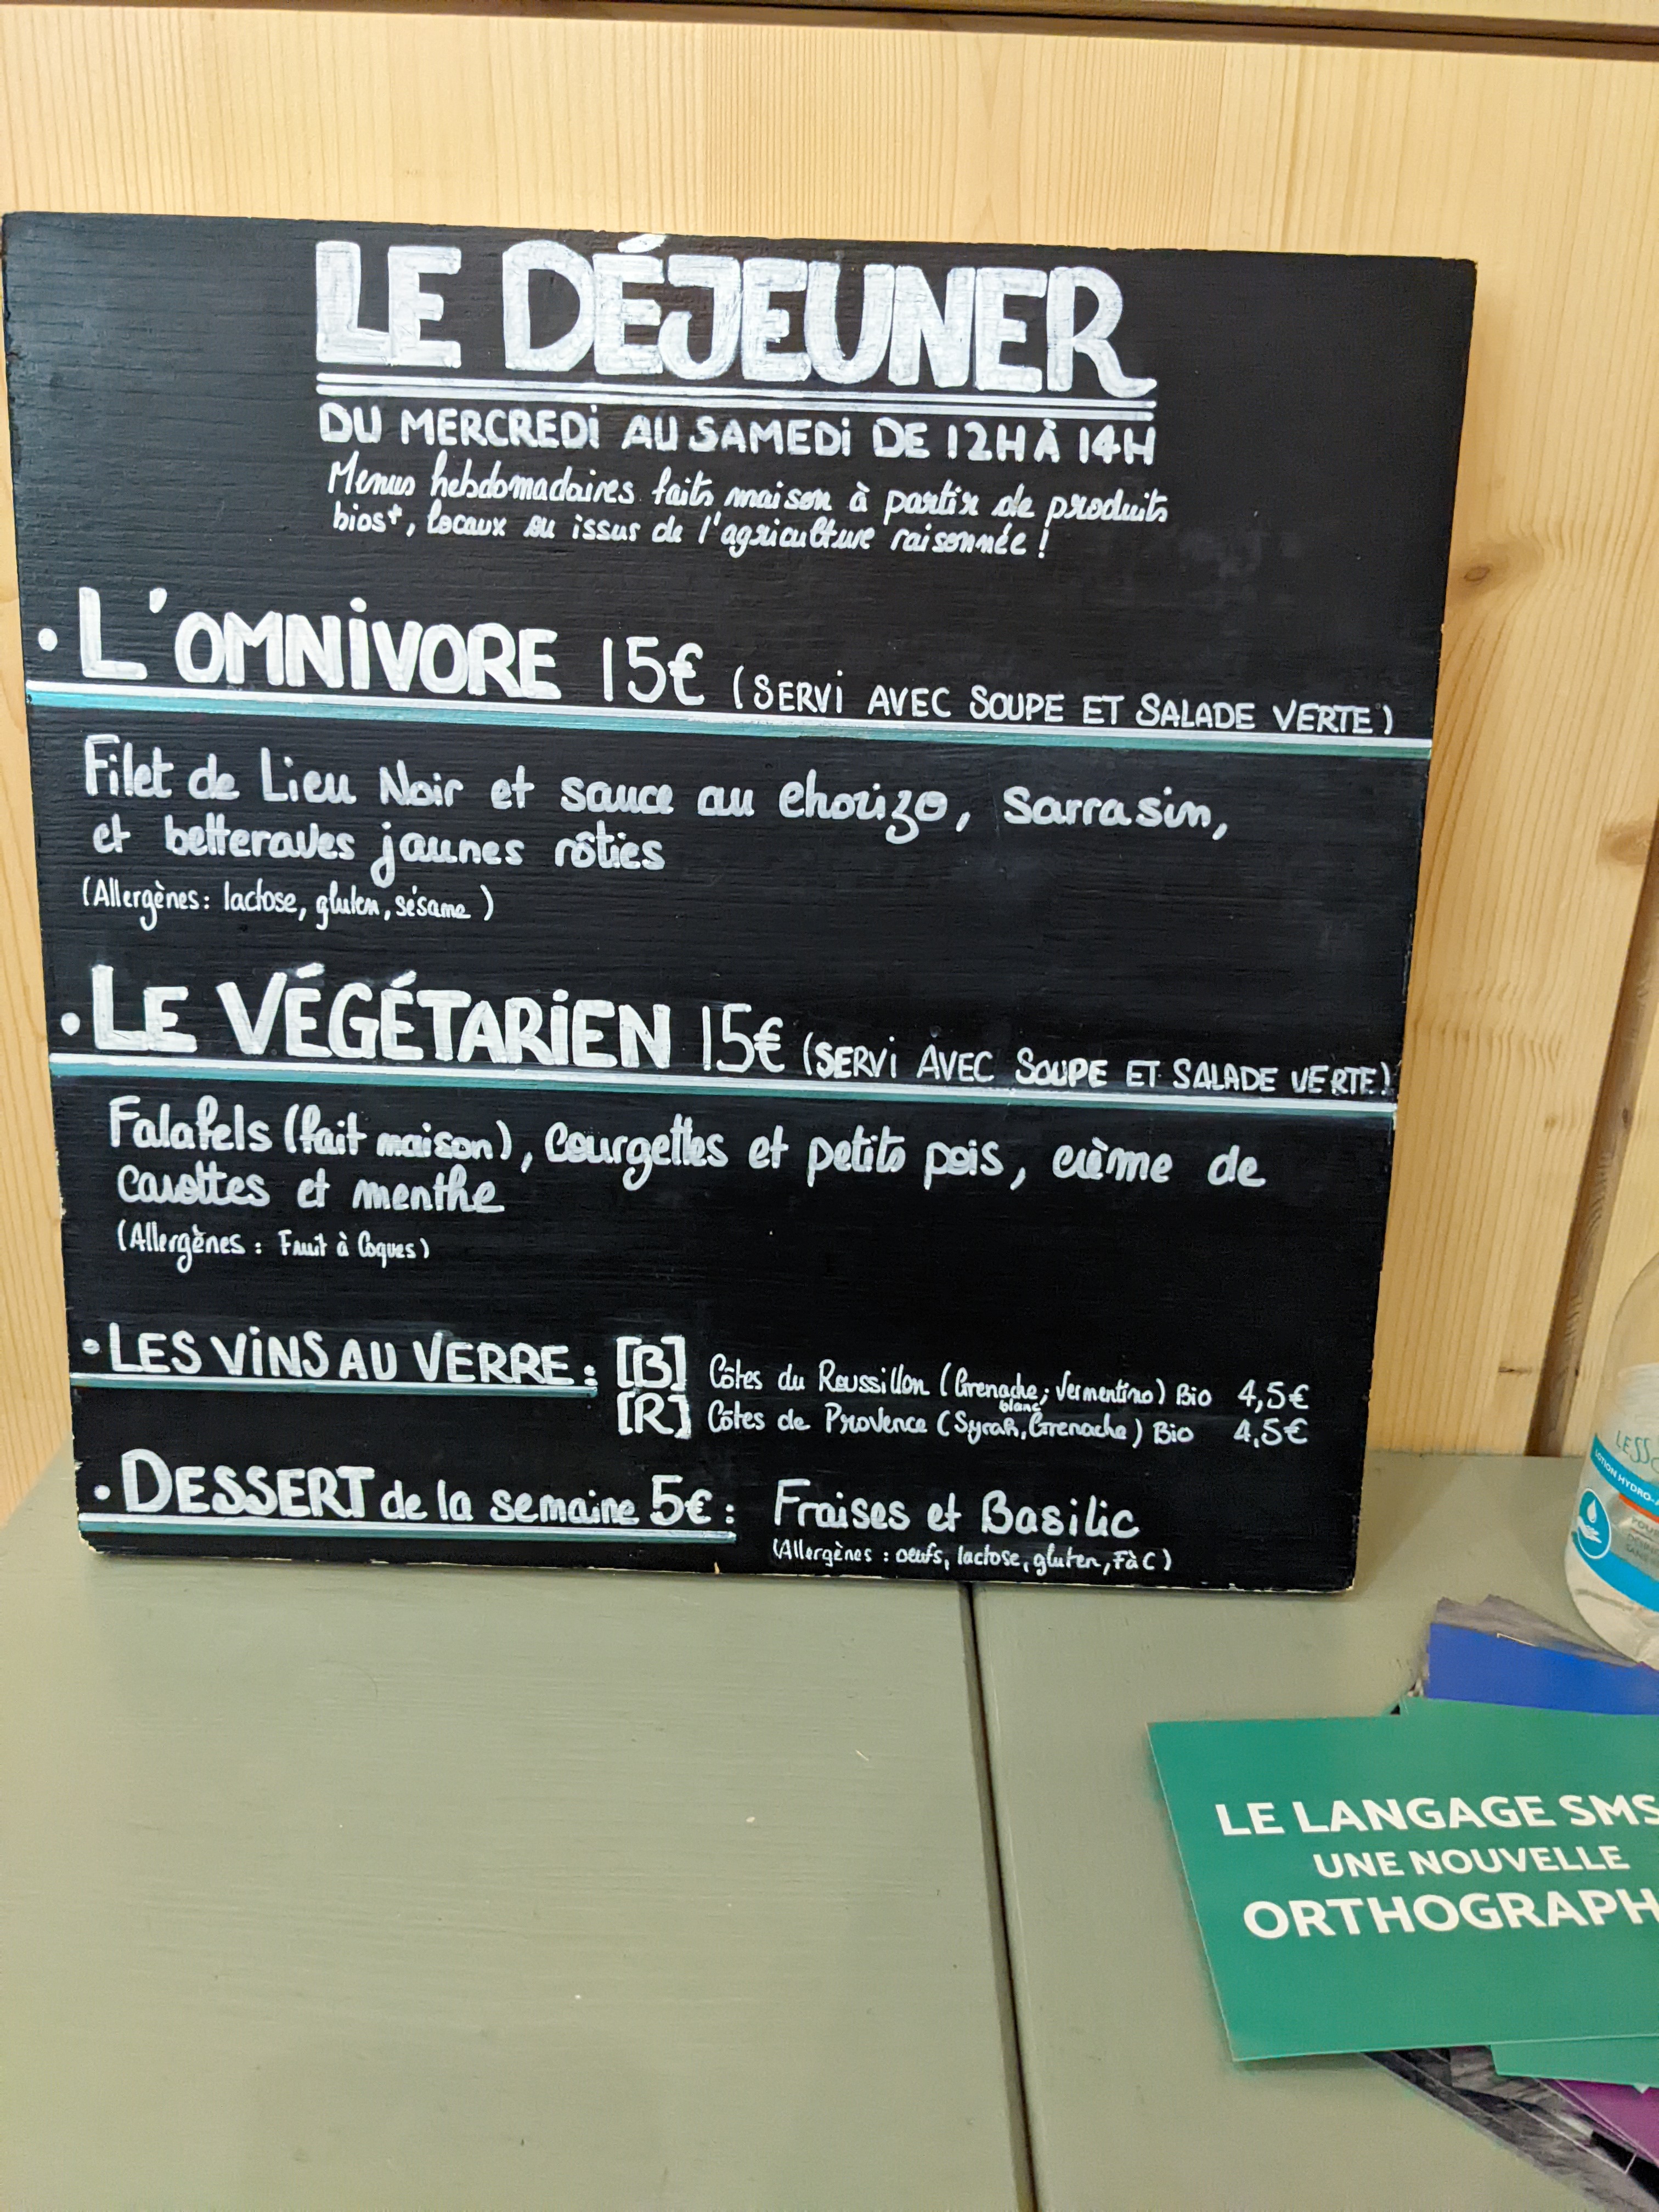 LE DÉJEUNER
DU MERCREDI AU SAMEDI DE 12H À 14H
Menus hebdomadaires faits maison à partir de produits
bios*, locaux ou issus de l'agriculture raisonnée !
• L'OMNIVORE 15€ (SERVI AVEC SOUPE ET SALADE VERTE)
Filet de Lieu Noir et sauce au chorizo, Sarrasin,
et betteraves jaunes rôties
(Allergènes : lactose, gluten, sésame)
• LE VÉGÉTARIEN 15€ (SERVI AVEC SOUPE ET SALADE VERTE)
Falafels (fait maison), Courgettes et petits pois, crème de
carottes et menthe
(Allergènes : Fruit à Coques)
• LES VINS AU VERRE : [B] Côtes du Roussillon (Grenache blanc, Vermentino) Bio 4,5€
[R] Côtes de Provence (Syrah, Grenache) Bio 4,5€
• DESSERT de la semaine 5€ : Fraises et Basilic
(Allergènes : oeufs, lactose, gluten, FàC)
LOTION HYDRO-
LE LANGAGE SMS
UNE NOUVELLE
ORTHOGRAPH